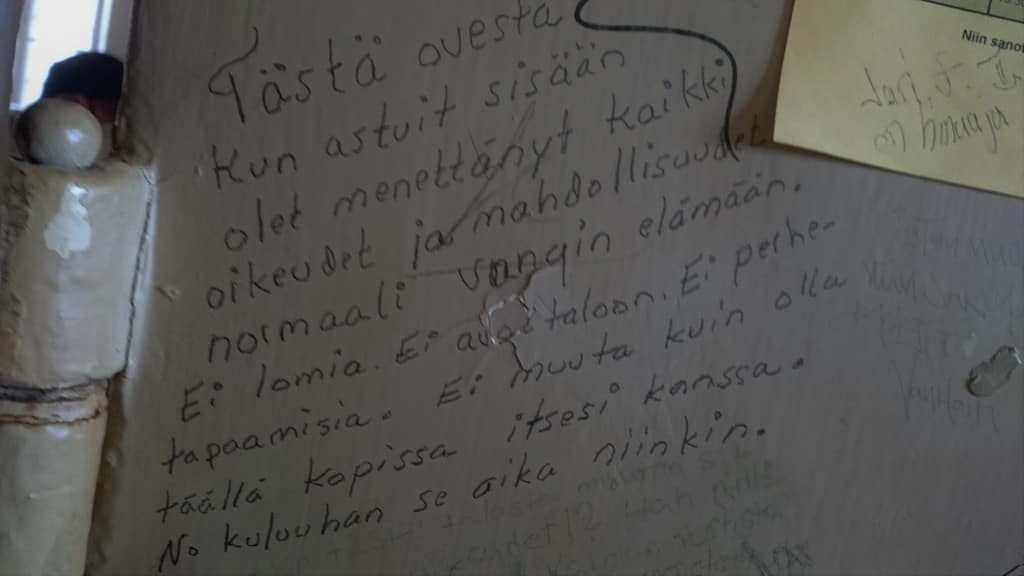 Tästä ovesta
Kun astuit sisään
olet menettänyt kaikki
oikeudet ja mahdollisuudet
normaali vangin elämään.
Ei lomia. Ei avotaloon. Ei perhe-
tapaamisia. Ei muuta kuin olla
täällä kopissa itsesi kanssa.
No kuluuhan se aika niinkin.
Niin sanot
Jari.